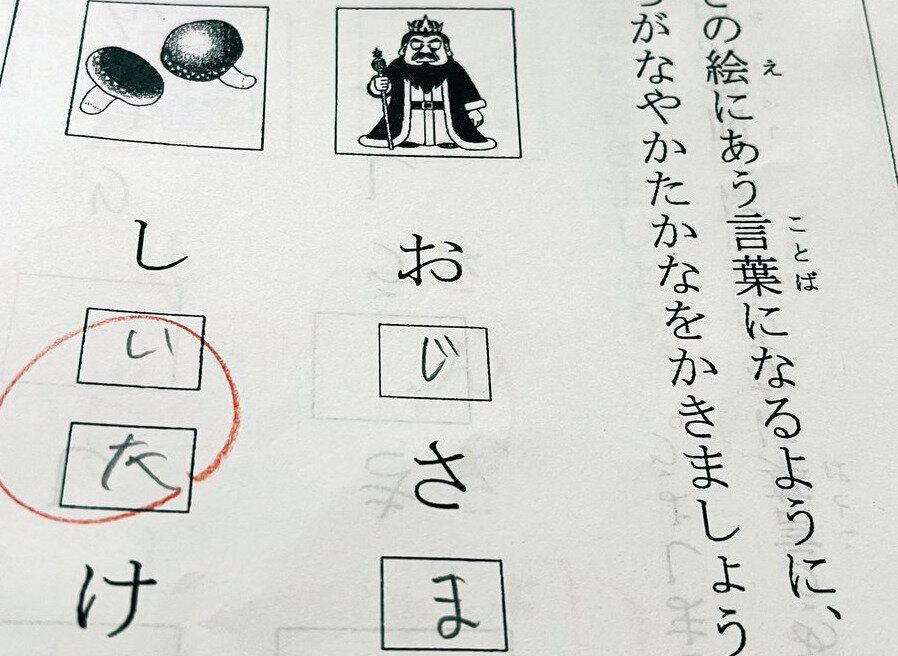 の絵にあう言葉になるように、
え
ことば
がなやかたかなをかきましょう
おじさま
しいたけ